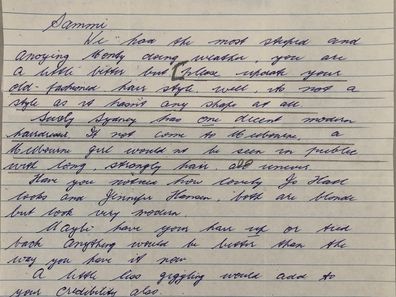 Sammi
We had the most stupid and
anoying Monty doing weather, you are
a little better but [please update your
old-fashioned hair style, well, its not a
style as it hasn't any shape at all
Surely Sydney has one decent modern
hairdresser If not come to Melbourne, a
Melbourne girl would not be seen in public
with long, straggly hair, all uneven
Have you noticed how lovely Jo Hall
looks and Jennifer Hansen, both are blonde
but look very modern.
Maybe have your hair up or tied
back anything would be better than the
way you have it now
A little less giggling would add to
your credibility also.